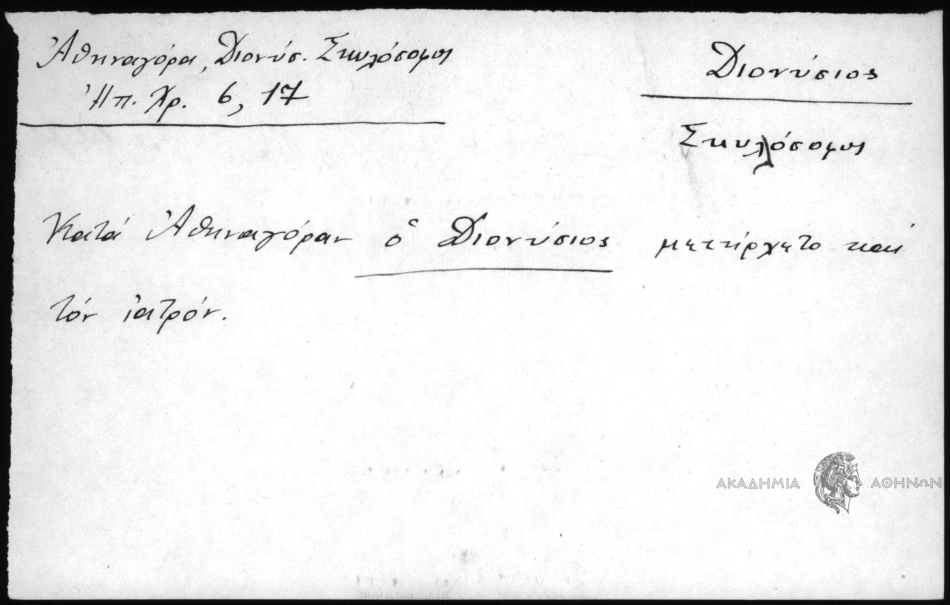 Ἀθηναγόρα, Διονύσ. Σκυλόσοφος
Ἠπ. Χρ. 6, 17
Διονύσιος
Σκυλόσοφος
Κατά Ἀθηναγόραν ὁ Διονύσιος μετήρχετο καί
τόν ἰατρόν.
ΑΚΑΔΗΜΙΑ ΑΘΗΝΩΝ